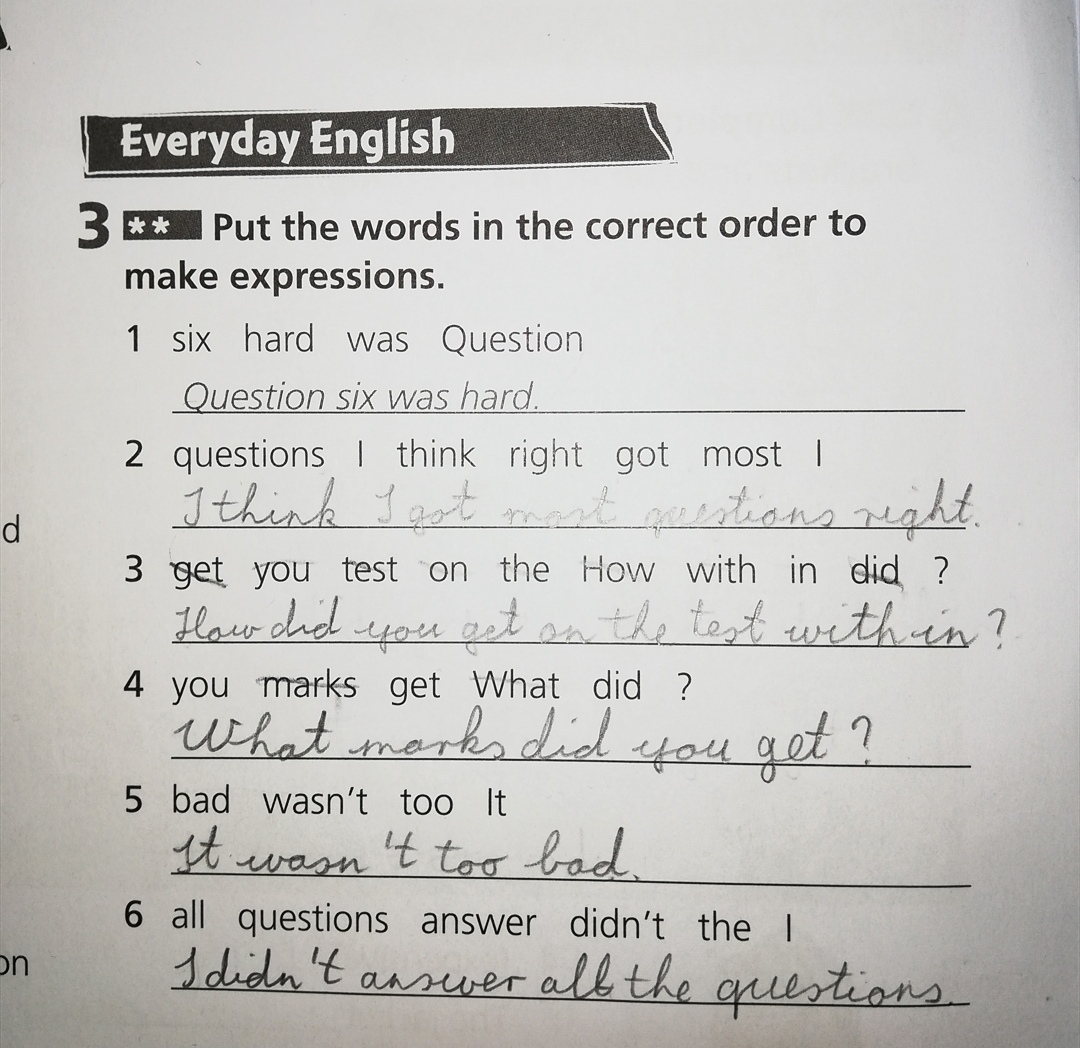 Everyday English
3 ** Put the words in the correct order to
make expressions.
1 six hard was Question
Question six was hard.
2 questions I think right got most I
I think I got most questions right.
d
3 get you test on the How with in did ?
How did you get on the test with in?
4 you marks get What did ?
What marks did you get?
5 bad wasn't too It
It wasn't too bad.
6 all questions answer didn't the I
on
I didn't answer all the questions.